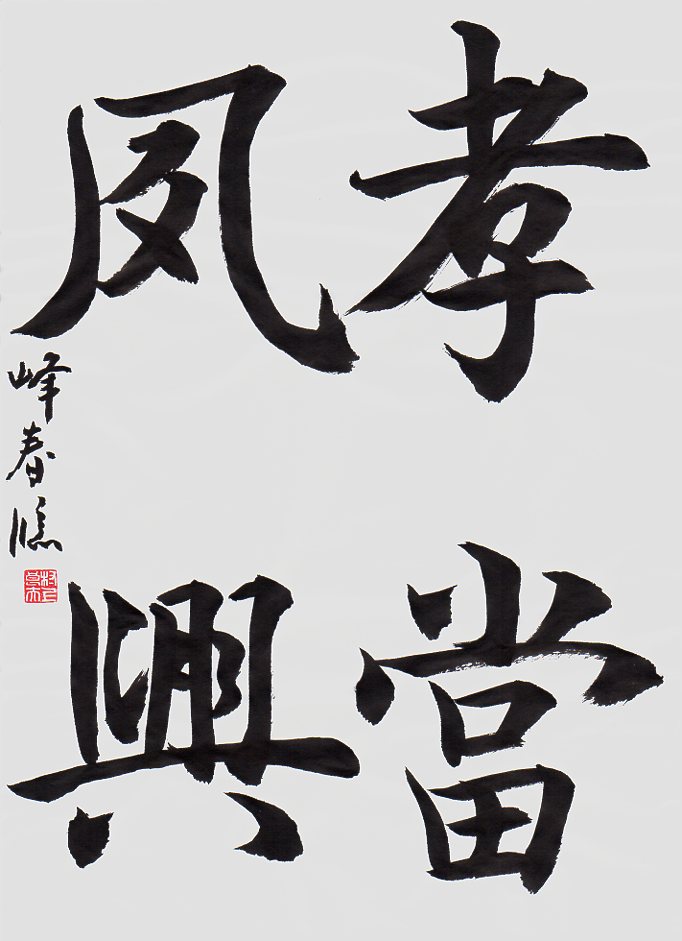 孝當
夙興
峰春臨